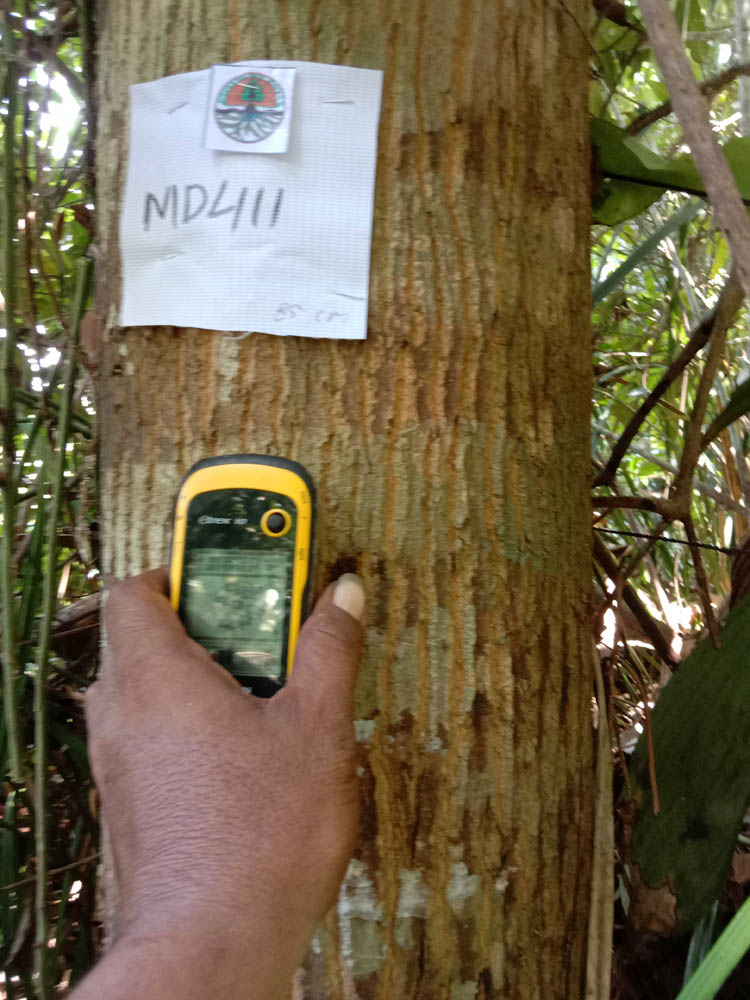 MD411
85 CM
eTrex 10